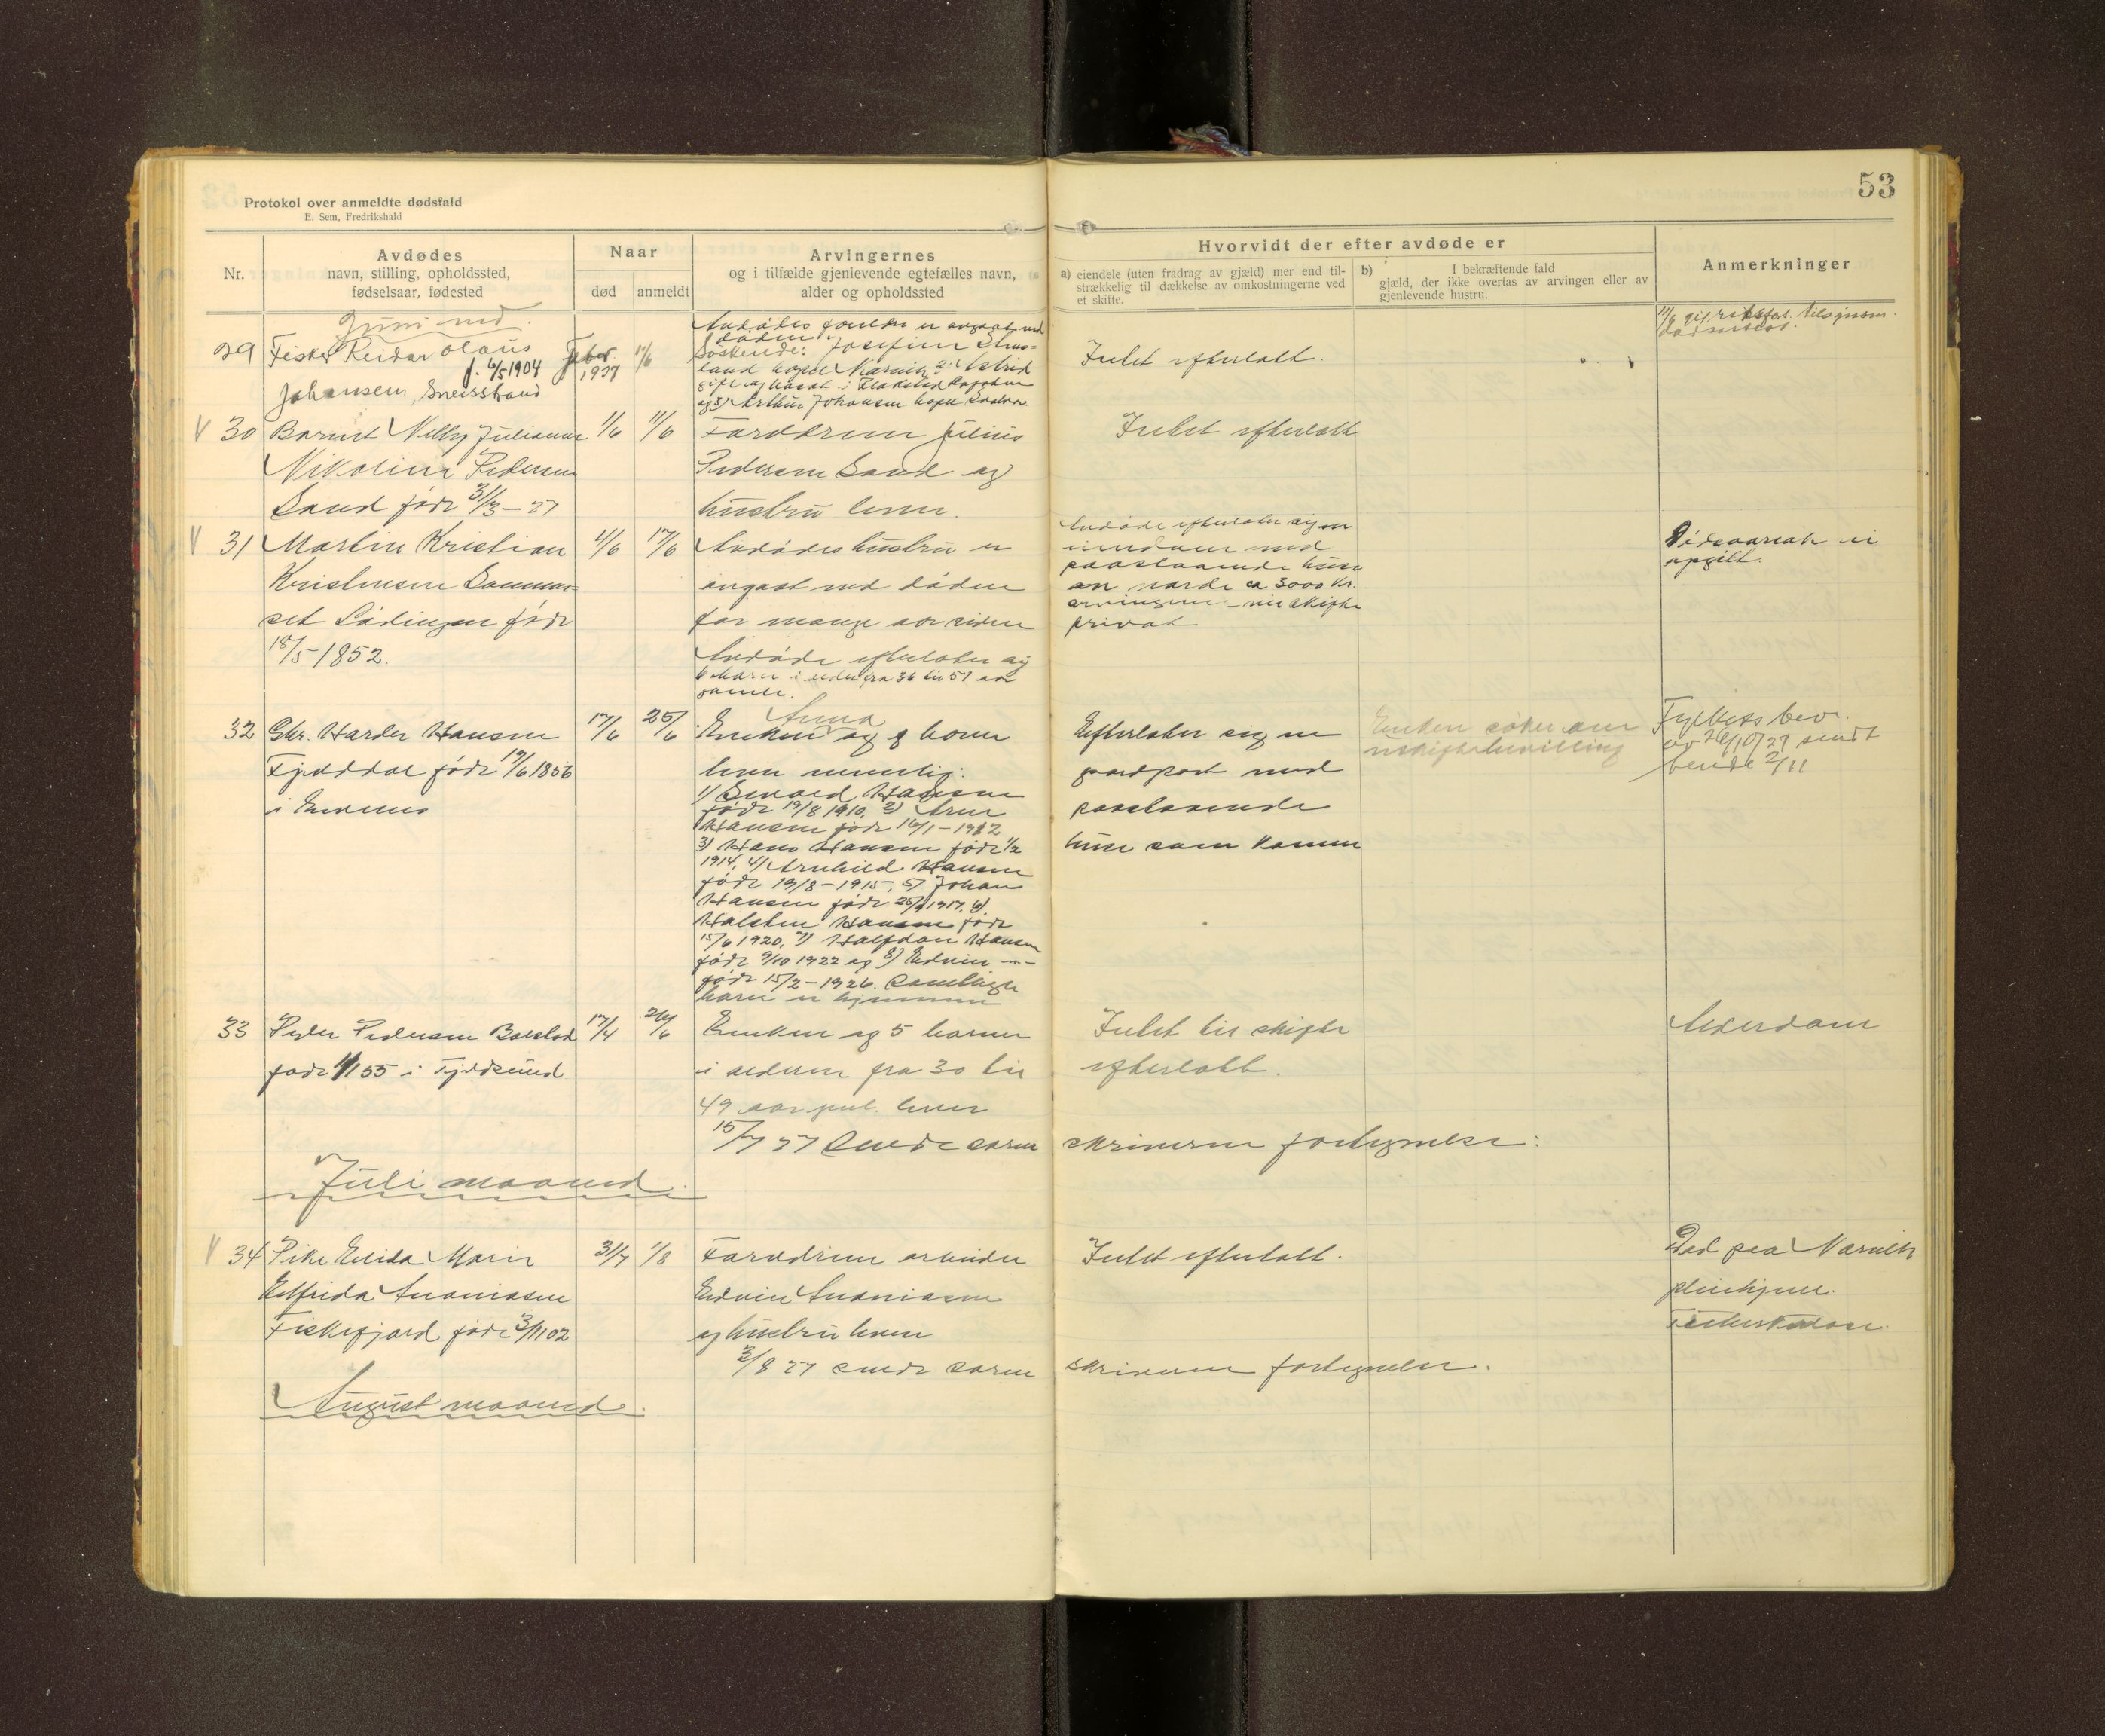 53
Protokol over anmeldte dødsfald
E. Sem, Fredrikshald
Nr.
Avdødes
navn, stilling, opholdssted,
fødselsaar, fødested
Naar
død
anmeldt
Arvingernes
og i tilfælde gjenlevende egtefælles navn,
alder og opholdssted
Hvorvidt der efter avdøde er
a) eiendele (uten fradrag av gjæld) mer end til-
strækkelig til dækkelse av omkostningerne ved
et skifte.
b) I bekræftende fald
gjæld, der ikke overtas av arvingen eller av
gjenlevende hustru.
Anmerkninger
Juni md.
29 Fisker Reidar Olaus
f. 6/5 1904
Johansen,
Feber
1927
11/6
Avdødes foreldre er avgaat ved
døden.
Søskende: Josefine
gift og bosat i Flakstad
og 3) Arthur Johansen
Intet efterlatt.
11/6
30 Barnet Nelly Julianne
Nikoline Pedersen
Sand født 31/3-27
1/6
11/6
Forældrene Julius
Pedersen Sand og
hustru lever.
Intet efterlatt
31 Martin Kristian
Kristensen Sommer-
set Lødingen født
18/5 1852.
4/6
17/6
Avdødes hustru er
avgaat ved døden
for mange aar siden
Avdøde efterlater sig
6 barn i alder fra 36 til 51 aar
gamle.
Avdøde efterlater sig en
eiendom med
paastaaende huse
av værde ca 3000 Kr.
arvingene vil skifte
privat
Dødsaarsak ei
opgit.
32 Chr. Harder Hansen
Fjelddal født 19/6 1856
i Evenes
17/6
25/6
Enken Anna og 8 barn
lever nemlig:
1) Sevald Hansen
født 19/8 1910, 2) Arne
Hansen født 16/1-1912
3) Hans Hansen født 1/2
1914, 4) Arnhild Hansen
født 19/8-1915, 5) Johan
Hansen født 25/ 1917, 6)
Halsten Hansen født
15/6 1920, 7) Halfdan Hansen
født 9/10 1922 og 8) Edvin -"-
født 15/2-1926. Samtlige
barn er hjemme
Efterlater sig en
gardpart med
paastaaende
huse som
Enken søker om
uskiftebevilling
Fylkets bev.
av 26/10/27 sendt
2/11
33 Peder Pedersen
født 1/1 55 i Fjeldsund
17/4
26/6
Enken og 5 barn
i alderen fra 30 til
49 aar lever
Intet til skifte
efterlatt.
Alderdom
15/7 27 Sendt soren skriveren fortegnelse:
Juli maaned.
34 Pike Elida Marie
Elfrida Ananiasen
Fiskefjord født 3/11 02
31/7
1/8
Forældrene arbeider
Edvin Ananiasen
og hustru lever
Intet efterlatt.
Død paa Narvik
pleiehjem.
3/8 27 sendt soren skriveren fortegnelse.
August maaned.